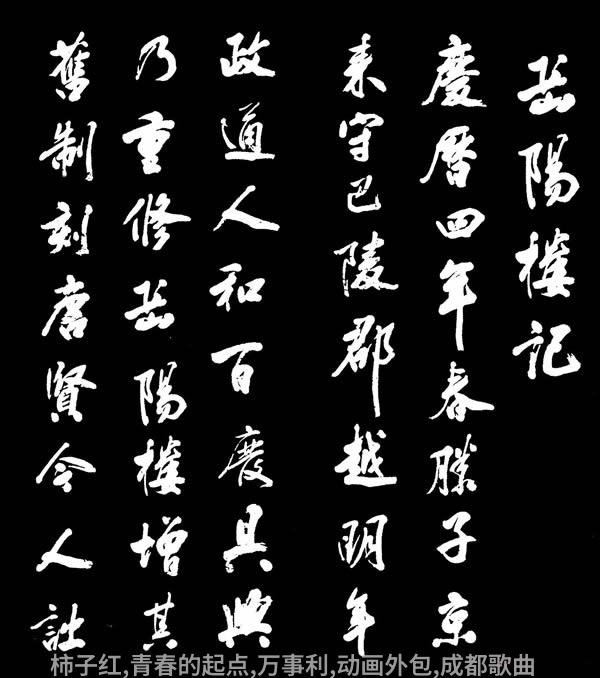 岳陽樓記
慶曆四年春滕子京
来守巴陵郡越明年
政通人和百廢具興
乃重修岳陽樓增其
舊制刻唐賢今人詩
柿子红,青春的起点,万事利,动画外包,成都歌曲